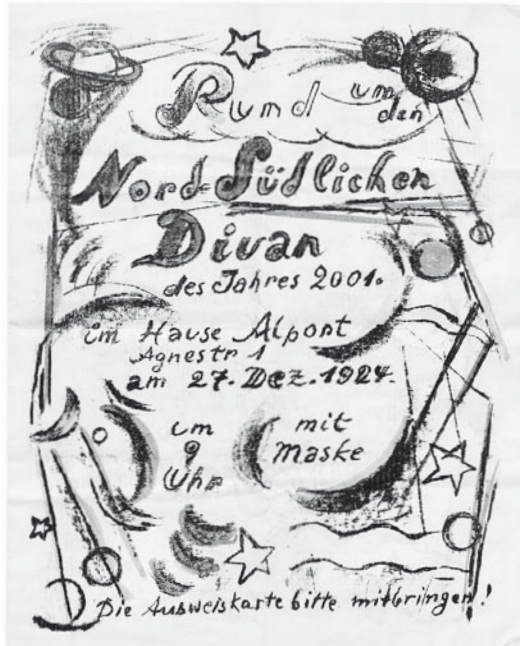 Rund um den
Nord-Südlichen
Divan
des Jahres 2001.
im Hause Alpont
Agnestr 1
am 27. Dez. 1924.
um mit
9 Maske
Uhr
Die Ausweiskarte bitte mitbringen!